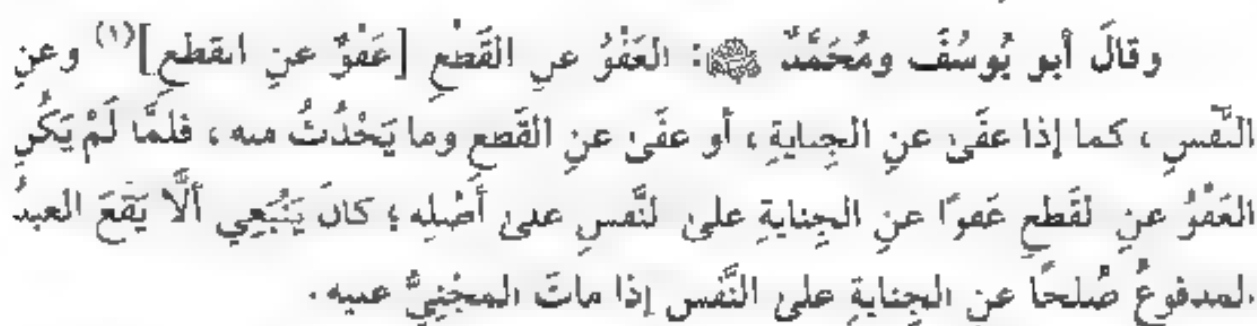 وقالَ أبو يُوسُفَ ومُحَمَّدٌ ﵄: العَفْوُ عنِ القَطْعِ [عَفْوٌ عنِ القطعِ](١) وعنِ
النَّفسِ، كما إذا عفَى عنِ الجِنايةِ، أو عفَى عنِ القَطعِ وما يَحْدُثُ منه، فلمَّا لَمْ يَكُنِ
العَفْوُ عنِ القَطعِ عَفوًا عنِ الجِنايةِ على النَّفسِ على أَصْلِه؛ كانَ يَنْبَغِي ألَّا يَقَعَ العبدُ
المدفوعُ صُلحًا عنِ الجِنايةِ على النَّفسِ إذا ماتَ المجْنِيُّ عليه.